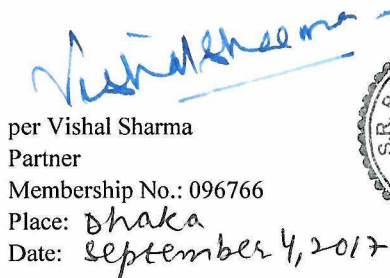 Vishal Sharma
per Vishal Sharma
Partner
Membership No.: 096766
Place: Dhaka
Date: September 4, 2017
S.R. B